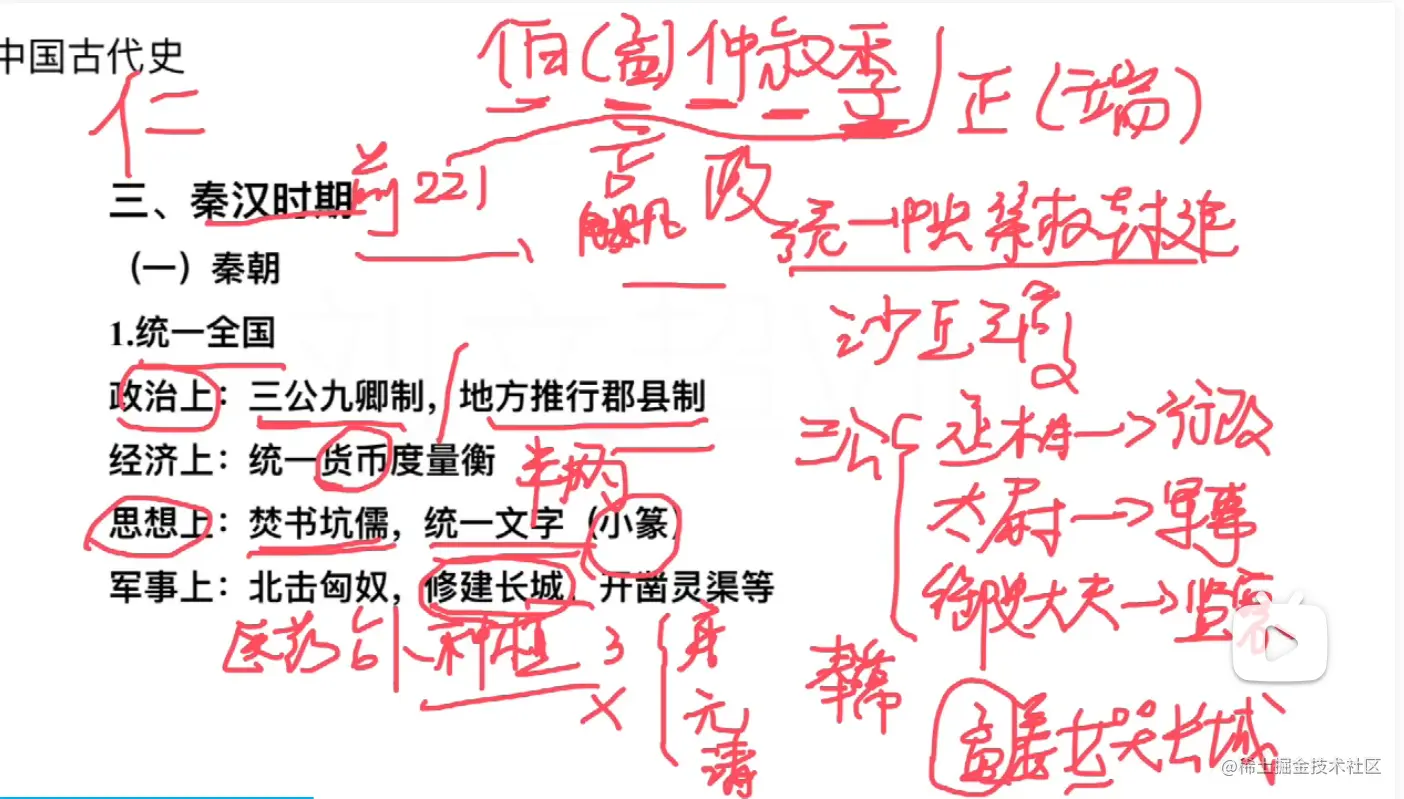 中国古代史
伯（孟）仲叔季
正（端）
仁
三、秦汉时期
前221
言
政
统一中央集权封建
（一）秦朝
沙丘
1.统一全国
政治上：三公九卿制，地方推行郡县制
三公
丞相→行政
经济上：统一货币度量衡
半两
太尉→军事
思想上：焚书坑儒，统一文字（小篆）
御史大夫→监察
军事上：北击匈奴，修建长城，开凿灵渠等
医药卜种植
秦
元
清
孟姜女哭长城
@稀土掘金技术社区